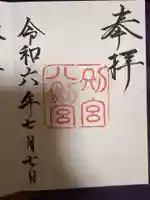 奉拝
別宮
八剣宮
令和六年七月七日